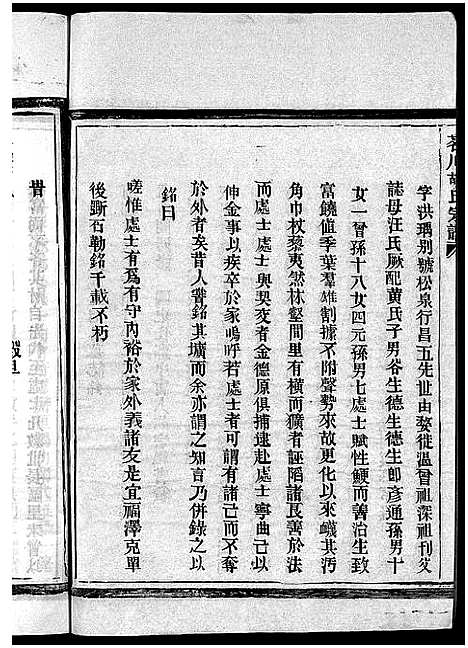 茗川胡氏宗譜
字洪瑀别號松泉行昌五先世由婺徙溫曾祖深祖刊父
誌母汪氏厥配黄氏子男谷生德生德生郎彦通孫男十
女一曾孫十八女四元孫男七處士賦性鯁而善治生致
富饒値季葉羣雄割據不附聲勢來故更化以來嘰其汚
角巾杖藜夷然林壑間里有横而獷者誣䧟諸良善於法
而處士處士與契友者金德原俱捕逮赴處士寧曲己而
伸金事以疾卒於家嗚呼若處士者可謂有諸己而不奪
於外者矣昔人嘗銘其壙而余亦謂之知言乃併錄之以
銘曰
嗟惟處士有爲有守內裕於家外義諸友是宜福澤克單
後斲石勒銘千載不朽
昔